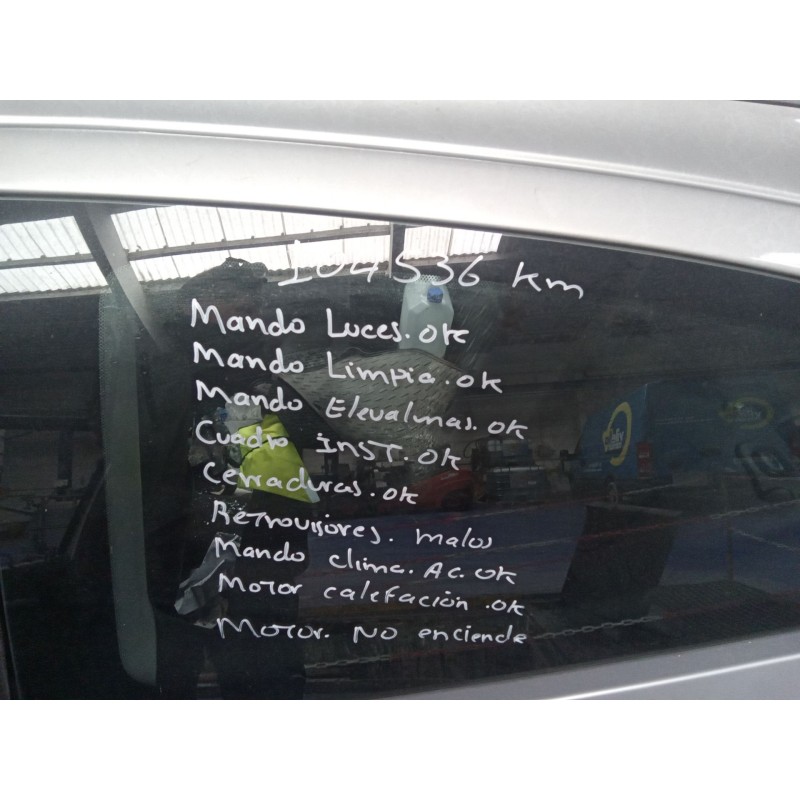 104536 km
Mando Luces. ok
Mando Limpia. ok
Mando Elevalunas. ok
Cuadro INST. OK
Cerraduras. ok
Retrovisores. malos
Mando clima. Ac. ok
Motor calefación. ok
Motor. No enciende